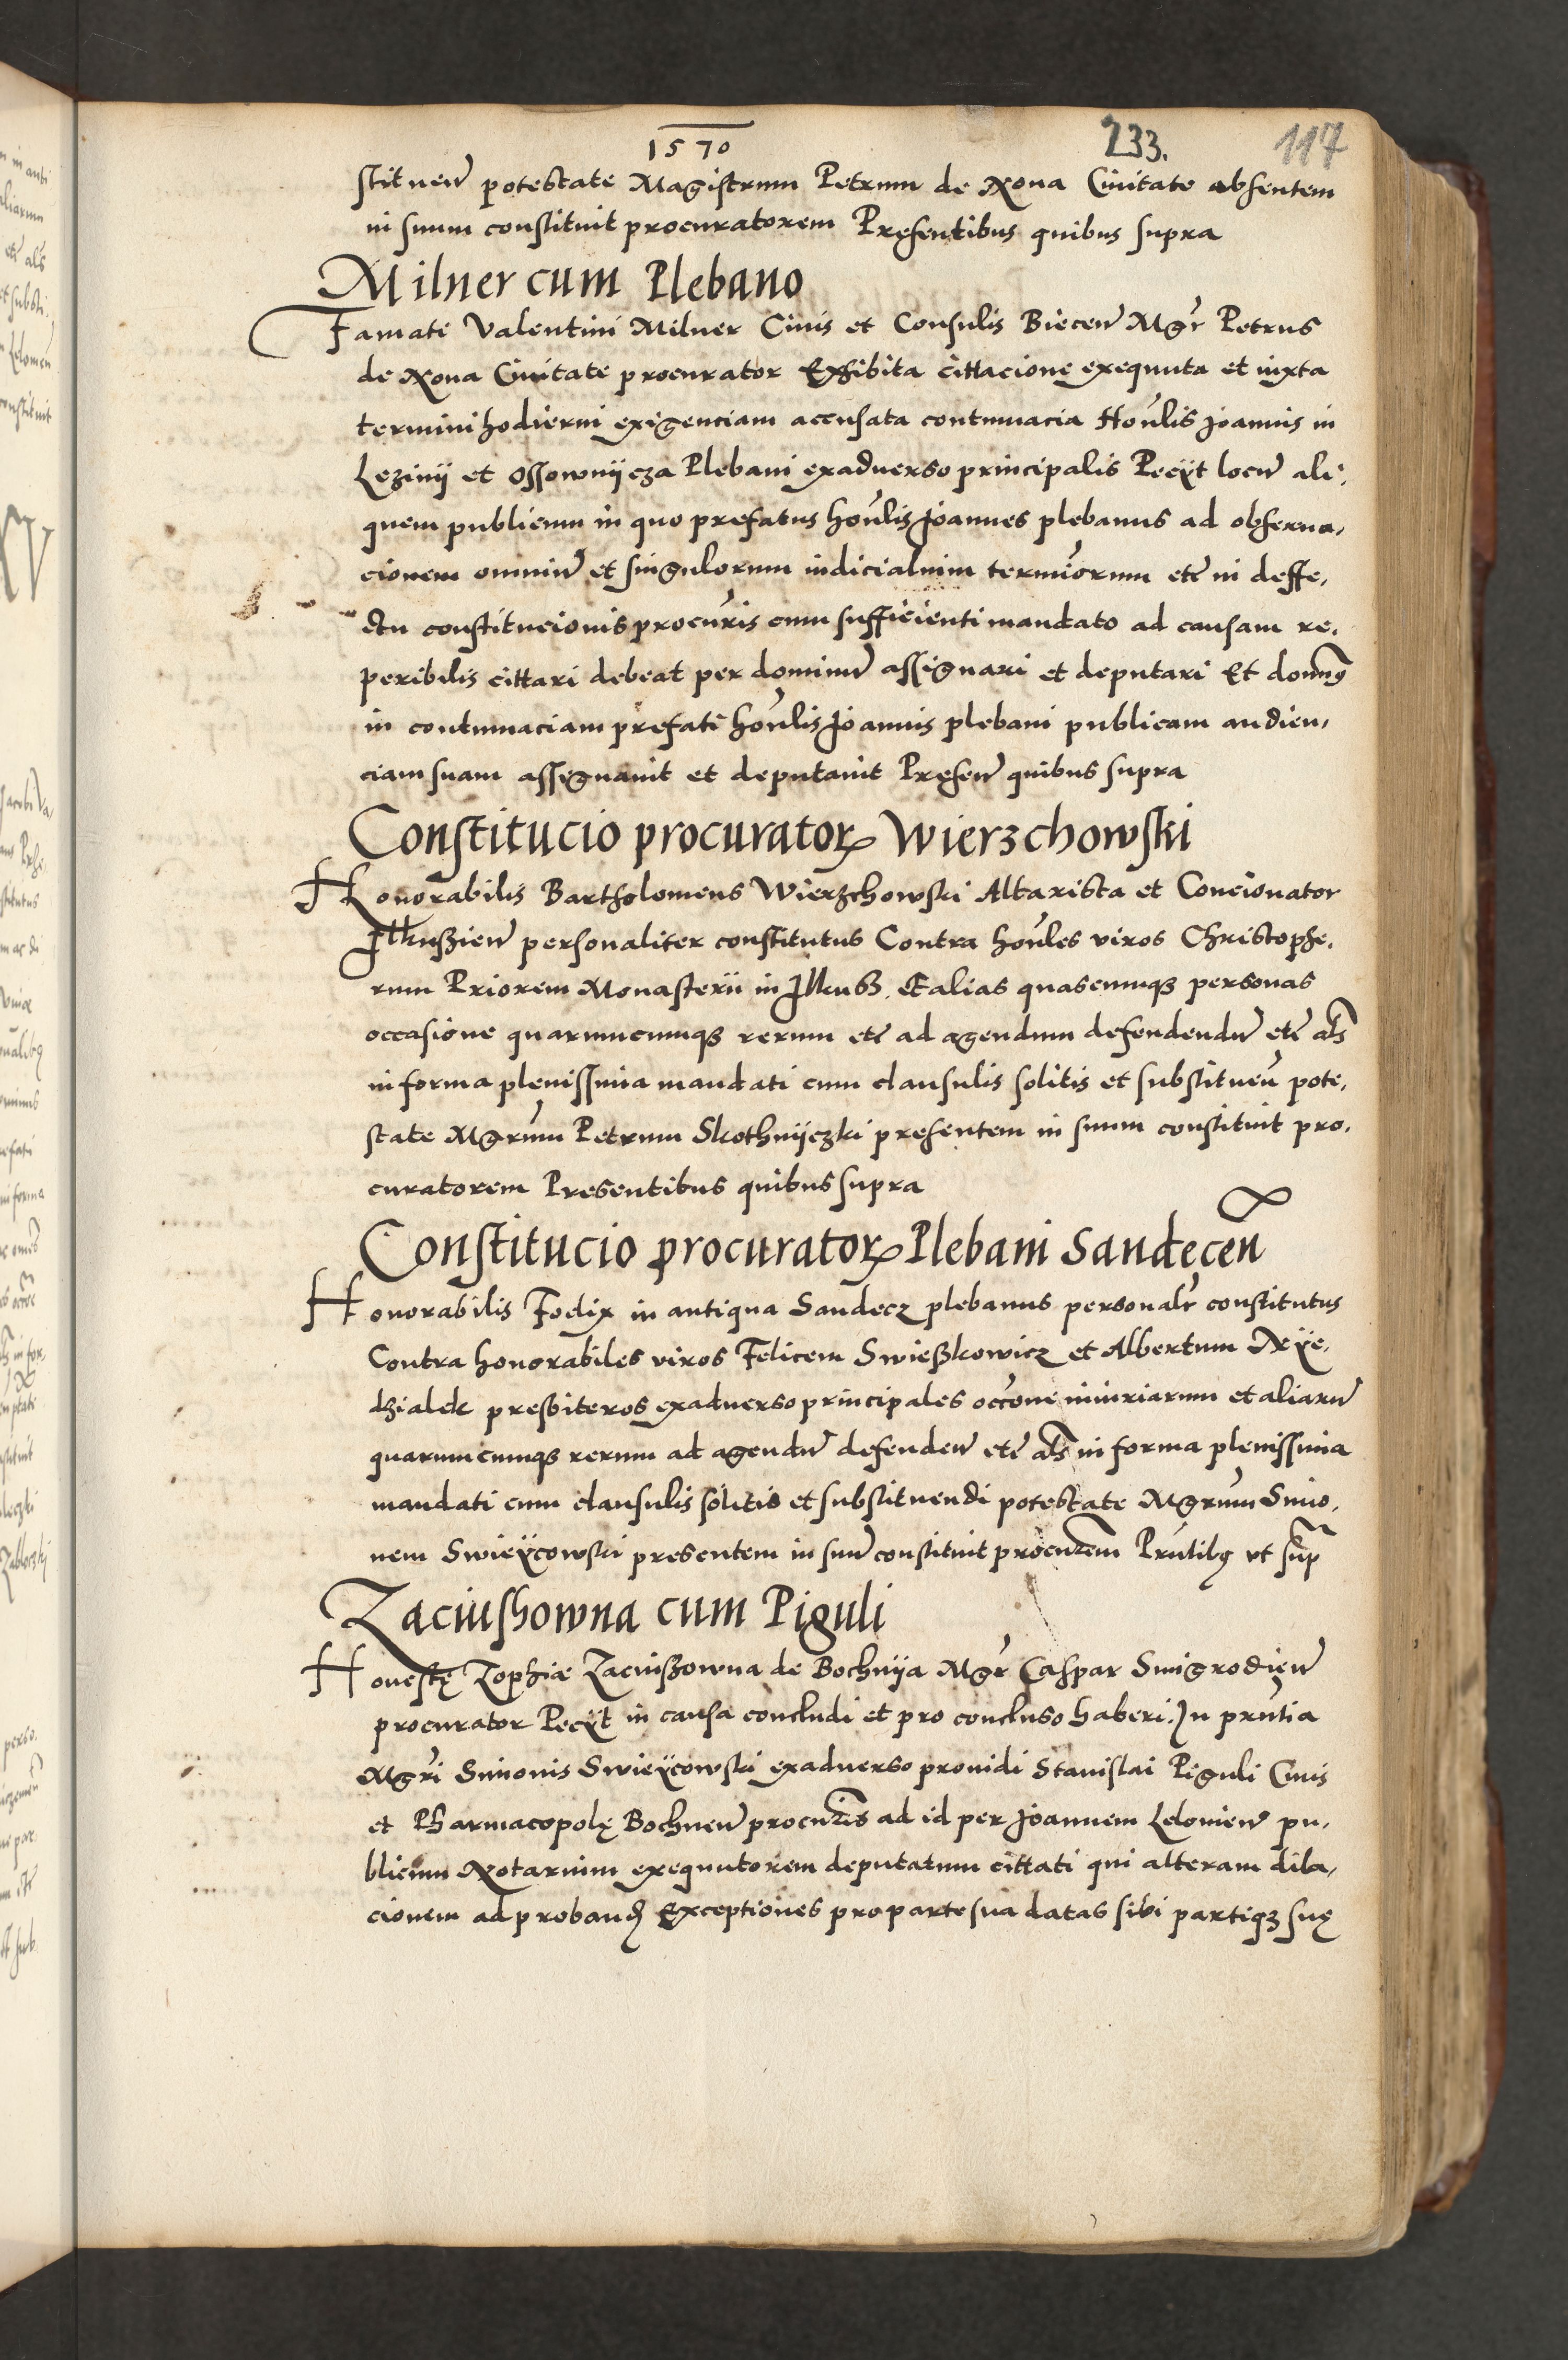 1570 233. 117
stituen̄ potestate Magistrum Petrum de Nova Civitate absentem
in suum constituit procuratorem Pręsentibus quibus supra
Milner cum Plebano
Famati Valentini Milner Civis et Consulis Biecen̄ Mgr̄ Petrus
de Nova Civitate procurator Exhibita cittacione exequuta et iuxta
termini hodierni exigenciam accusata contumacia Hon̄lis Joannis in
Lezinÿ et Ossownÿcza Plebani exadverso principalis Peciit locum̄ ali-
quem publicum in quo prefatus hon̄lis Joannes plebanus ad observa-
cionem omniū et singulorum iudicialium termīorum etc̄ in deffe-
ctu constitucionis procur̄is cum sufficienti mandato ad causam re-
peribilis cittari debeat per dominū assignari et deputari Et domin9
in contumaciam prefati hon̄lis Joannis plebani publicam audien-
ciam suam assignavit et deputavit Pręsen̄ quibus supra
Constitucio procurator̨ Wierzchowski
Honorabilis Bartholomeus Wierzchowski Altarista et Concionator
Ilkußien̄ personaliter constitutus Contra hon̄les viros Christophe-
rum Priorem Monasterii in Ilkuß. Et alias quascumqȝ personas
occasione quarumcumqȝ rerum etc̄ ad agendum defendendū etc̄ als̄
in forma plenissima mandati cum clausulis solitis et substituen̄ pote-
state Mgr̄um Petrum Skothnÿczki presentem in suum constituit pro-
curatorem Presentibus quibus supra
Constitucio procurator̨ Plebani Sandecen̄
Honorabilis Foelix in antiqua Sandecz plebanus personalr̄ constitutus
Contra honorabiles viros Felicem Swießkowicz et Albertum Nÿe-
dzialek presbiteros exadverso principales occ̄one iniuriarum et aliarū
quarumcumqȝ rerum ad agendū defenden̄ etc̄ als̄ in forma plenissima
mandati cum clausulis solitis et substituendi potestate Mgr̄um Simo-
nem Swieÿcowski presentem in suū constituit procur̄em Prn̄tibȝ ut sup̄
Zaciushowna cum Piguli
Honestę Zophiæ Zaciußowna de Bochnÿa Mgr̄ Caspar Smigrodien̄
procurator Peciit in causa concludi et pro concluso haberi. In prn̄tia
Mgr̄i Simonis Swieÿcowski exadverso providi Stanislai Piguli Civis
et Pharmacopolę Bochnen̄ procur̄is ad id per Joannem Lelovien̄ pu-
blicum Notarium exequutorem deputatum cittati qui alteram dila-
cionem ad proband̨ Exceptiones pro parte sua datas sibi partiqȝ suę